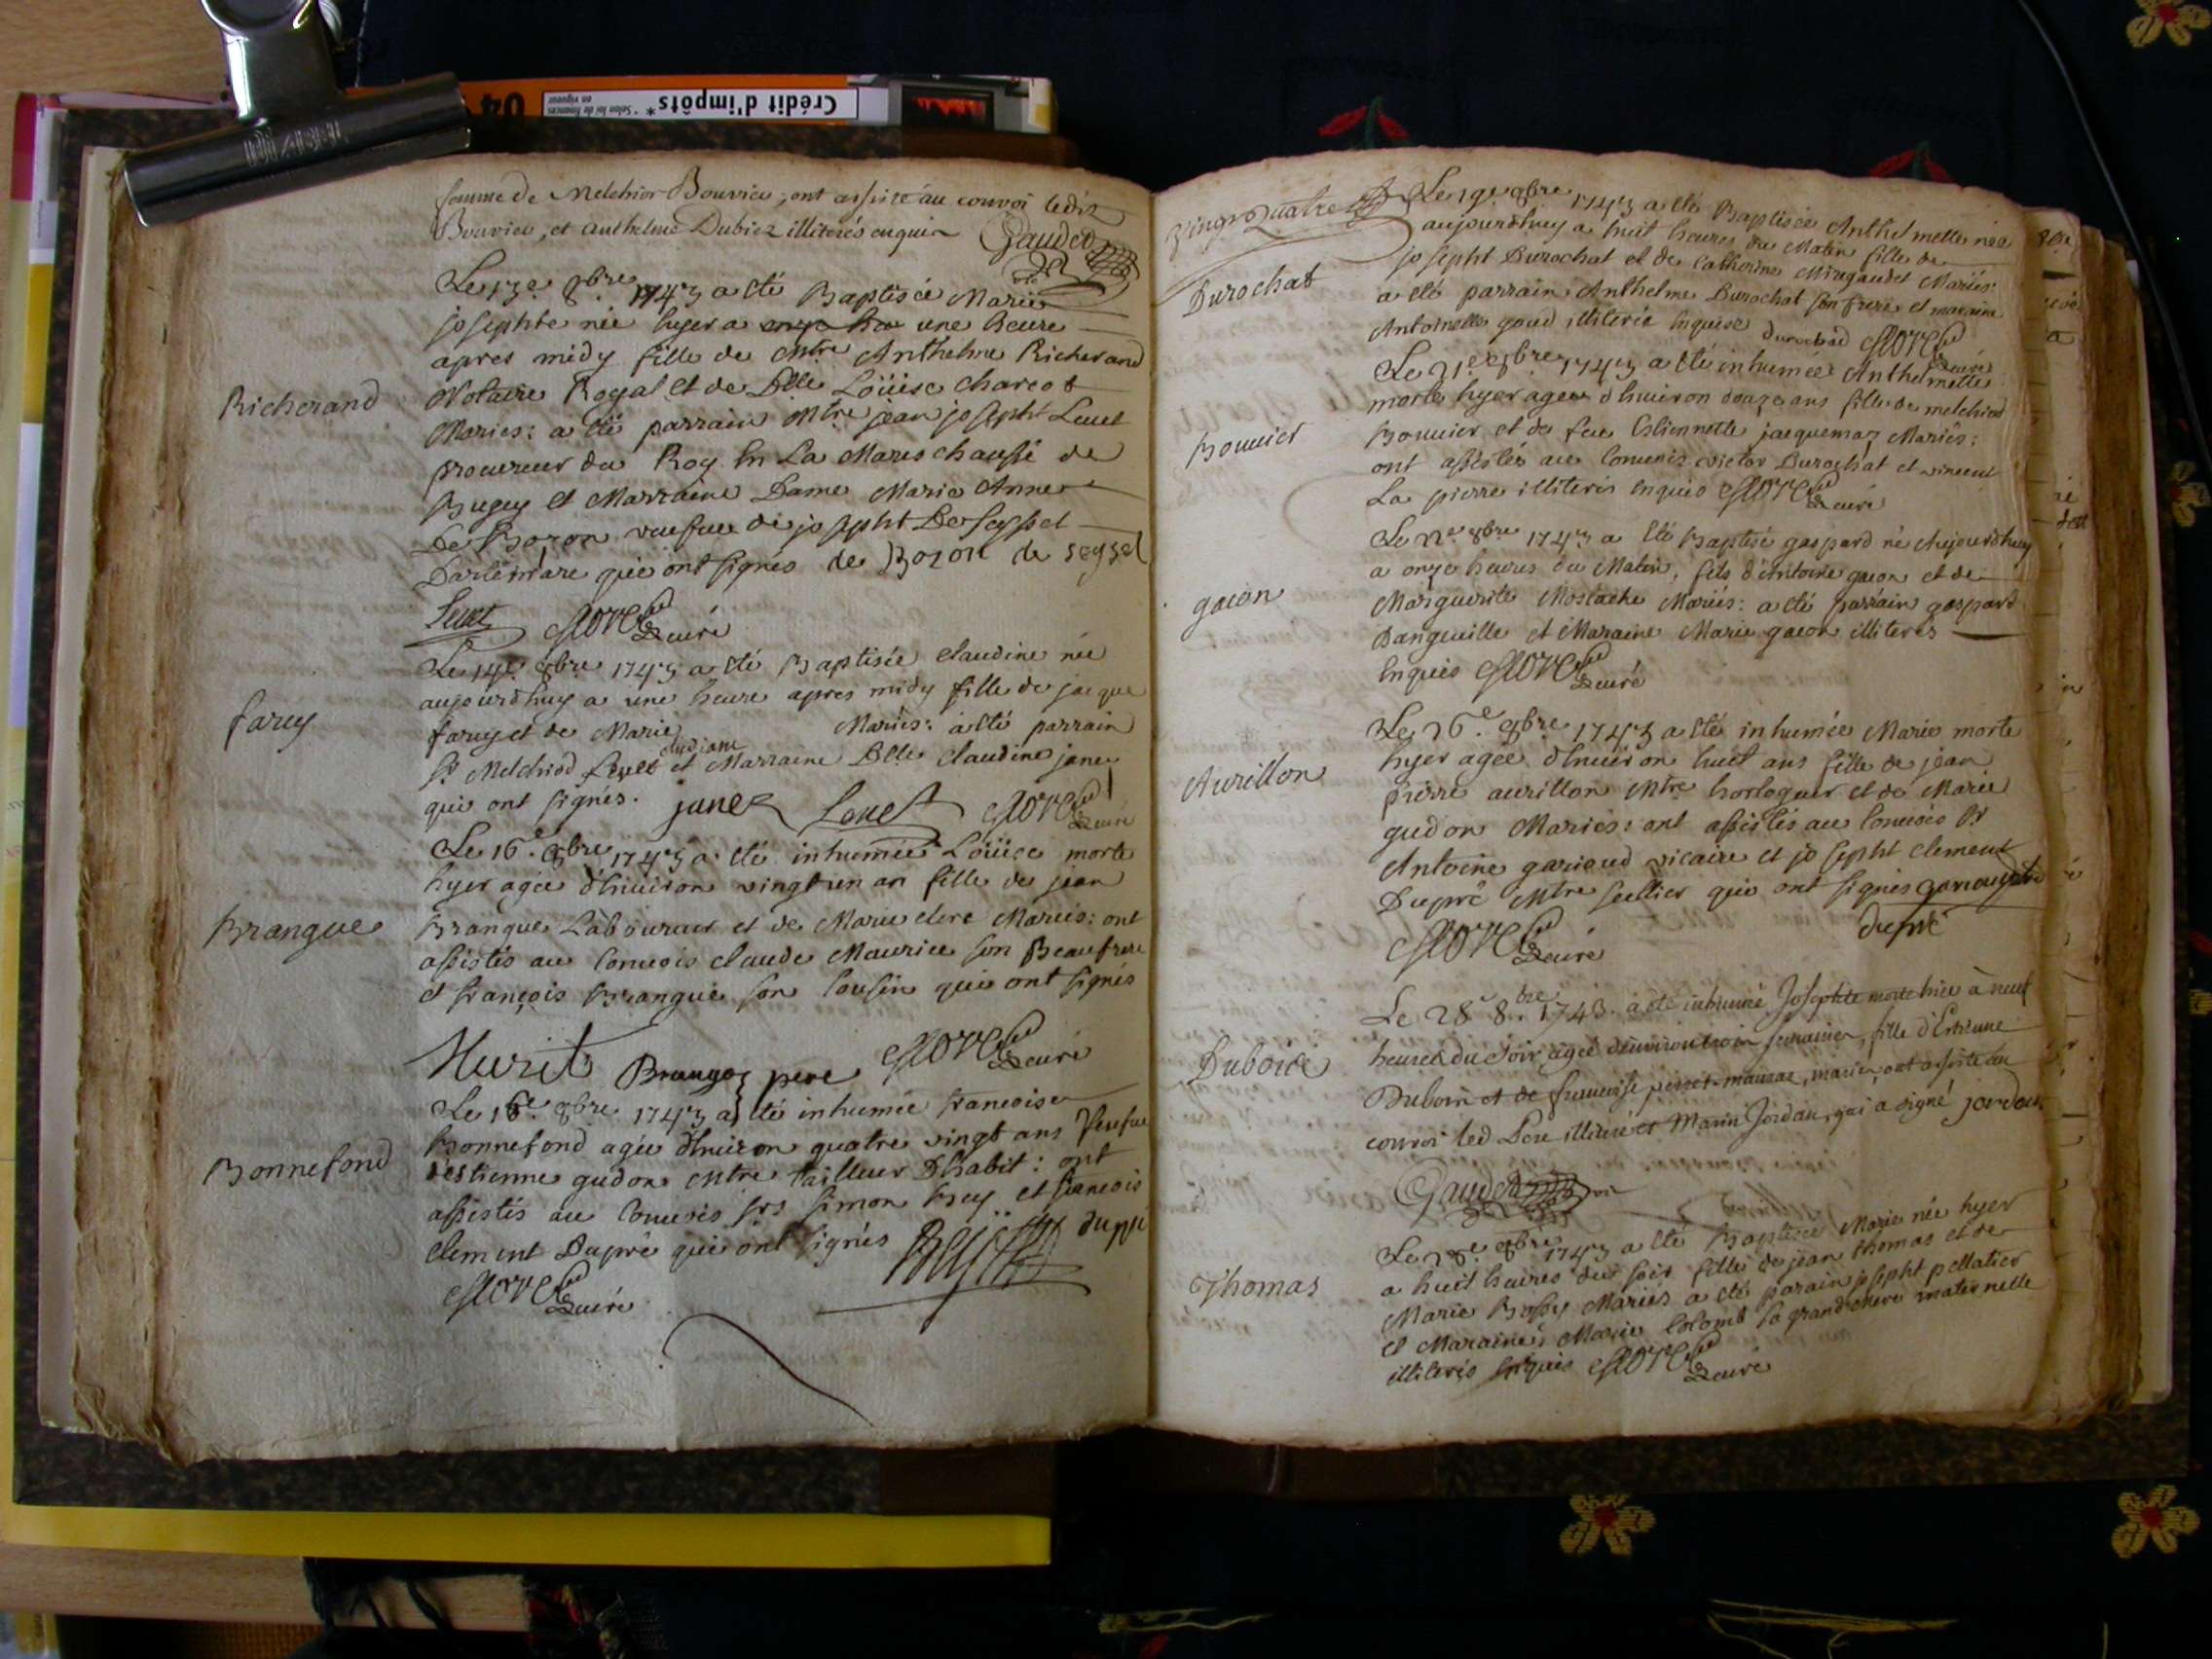 Crédit d'impôts *
* Selon loi de finances
en vigueur
04
femme de Melchior Bouvier, ont assisté au convoi ledit
Bouvier, et Anthelme Dubiez illiterés enquis Gaudet
Le 13e 8bre 1743 a eté Baptisée Marie
Josephte née hyer a une heure
Richerand
apres midy fille de Mtre Anthelme Richerand
Notaire Royal et de Dlle Loüise Charcot
Mariés: a eté parrain Mtre jean josepht Leuet
procureur du Roy En La Mareschaussé de
Bugey et Marraine Dame Marie Anne
De Bozon veufue de josepht De Seyssel
qui ont signés de Bozon de seyssel
Leuet curé
Le 14e 8bre 1743 a eté Baptisée Claudine née
aujourdhuy a une heure apres midy fille de jacque
faruy
faruy et de Marie Mariés: a eté parrain
Sr Melchiod Leuet etudiant et Marraine Dlle Claudine janex
qui ont signés. janex Leuet curé
Le 16e 8bre 1743 a eté inhumée Loüise morte
hyer agée d'huiron vingt un an fille de jean
Brangue
Brangue Laboureur et de Marie clere Mariés: ont
assistés au Conuois claude Maurice son Beaufrere
et françois Brangue son Cousin qui ont signés
Murit Brangoz pere curé
Le 16e 8bre 1743 a eté inhumée francoise
Bonnefond
Bonnefond agée dhuiron quatre vingt ans Veufue
d'estienne gudon Mtre tailleur Dhabit: ont
assistés au Conuois srs simon Rey et francois
clement Dupré qui ont signés Rey dupré
curé
Vingt Quatre
Le 19e 8bre 1743 a eté Baptisée Anthelmette née
aujourdhuy a huit heures du Matin fille de
Durochat
josepht Durochat et de Catherine Mingaudet Mariés:
a eté parrain Anthelme Durochat son frere et maraine
Antoinette goud illiterée Enquise durochad curé
Le 21e 8bre 1743 a eté inhumée Anthelmette
morte hyer agée dhuiron douze ans fille de melchiod
Bouuier
Bouuier et de feu Estiennette jacquemaz Mariés:
ont assistés au Conuois victor Durochat et vincent
La pierre illiterés Enquis curé
Le 22e 8bre 1743 a eté Baptisé gaspard né aujourdhuy
a onze heures du Matin, fils d'Antoine gacon et de
gacon
Marguerite Mostache Mariés: a eté parrain gaspard
Danguille et Maraine Marie gacon illiterés
Enquis curé
Le 26e 8bre 1743 a eté inhumée Marie morte
hyer agée dhuiron huit ans fille de jean
Aurillon
pierre aurillon Mtre horloguer et de Marie
gudon Mariés: ont assistés au Conuois Sr
Antoine gariaud vicaire et josepht clement
Dupré Mtre sellier qui ont signés
dupré
curé
Le 28e 8bre 1743. a eté inhumé Josephte morte hier à neuf
heures du Soir agée denviron trois semaines, fille d'Estienne
Dubois
Dubois et de francoise, mariés, ont assisté au
convoi led Pere illiteré et Marin Jordan, qui a signé jordan
Gaudet
Le 28e 8bre 1743 a eté Baptisée Marie née hyer
a huit heures du soir fille de jean thomas et de
Thomas
Marie Bossy Mariés a eté parain josepht pellatier
et Maraine Marie Colomb sa grand Mere maternelle
illiterés Enquis curé